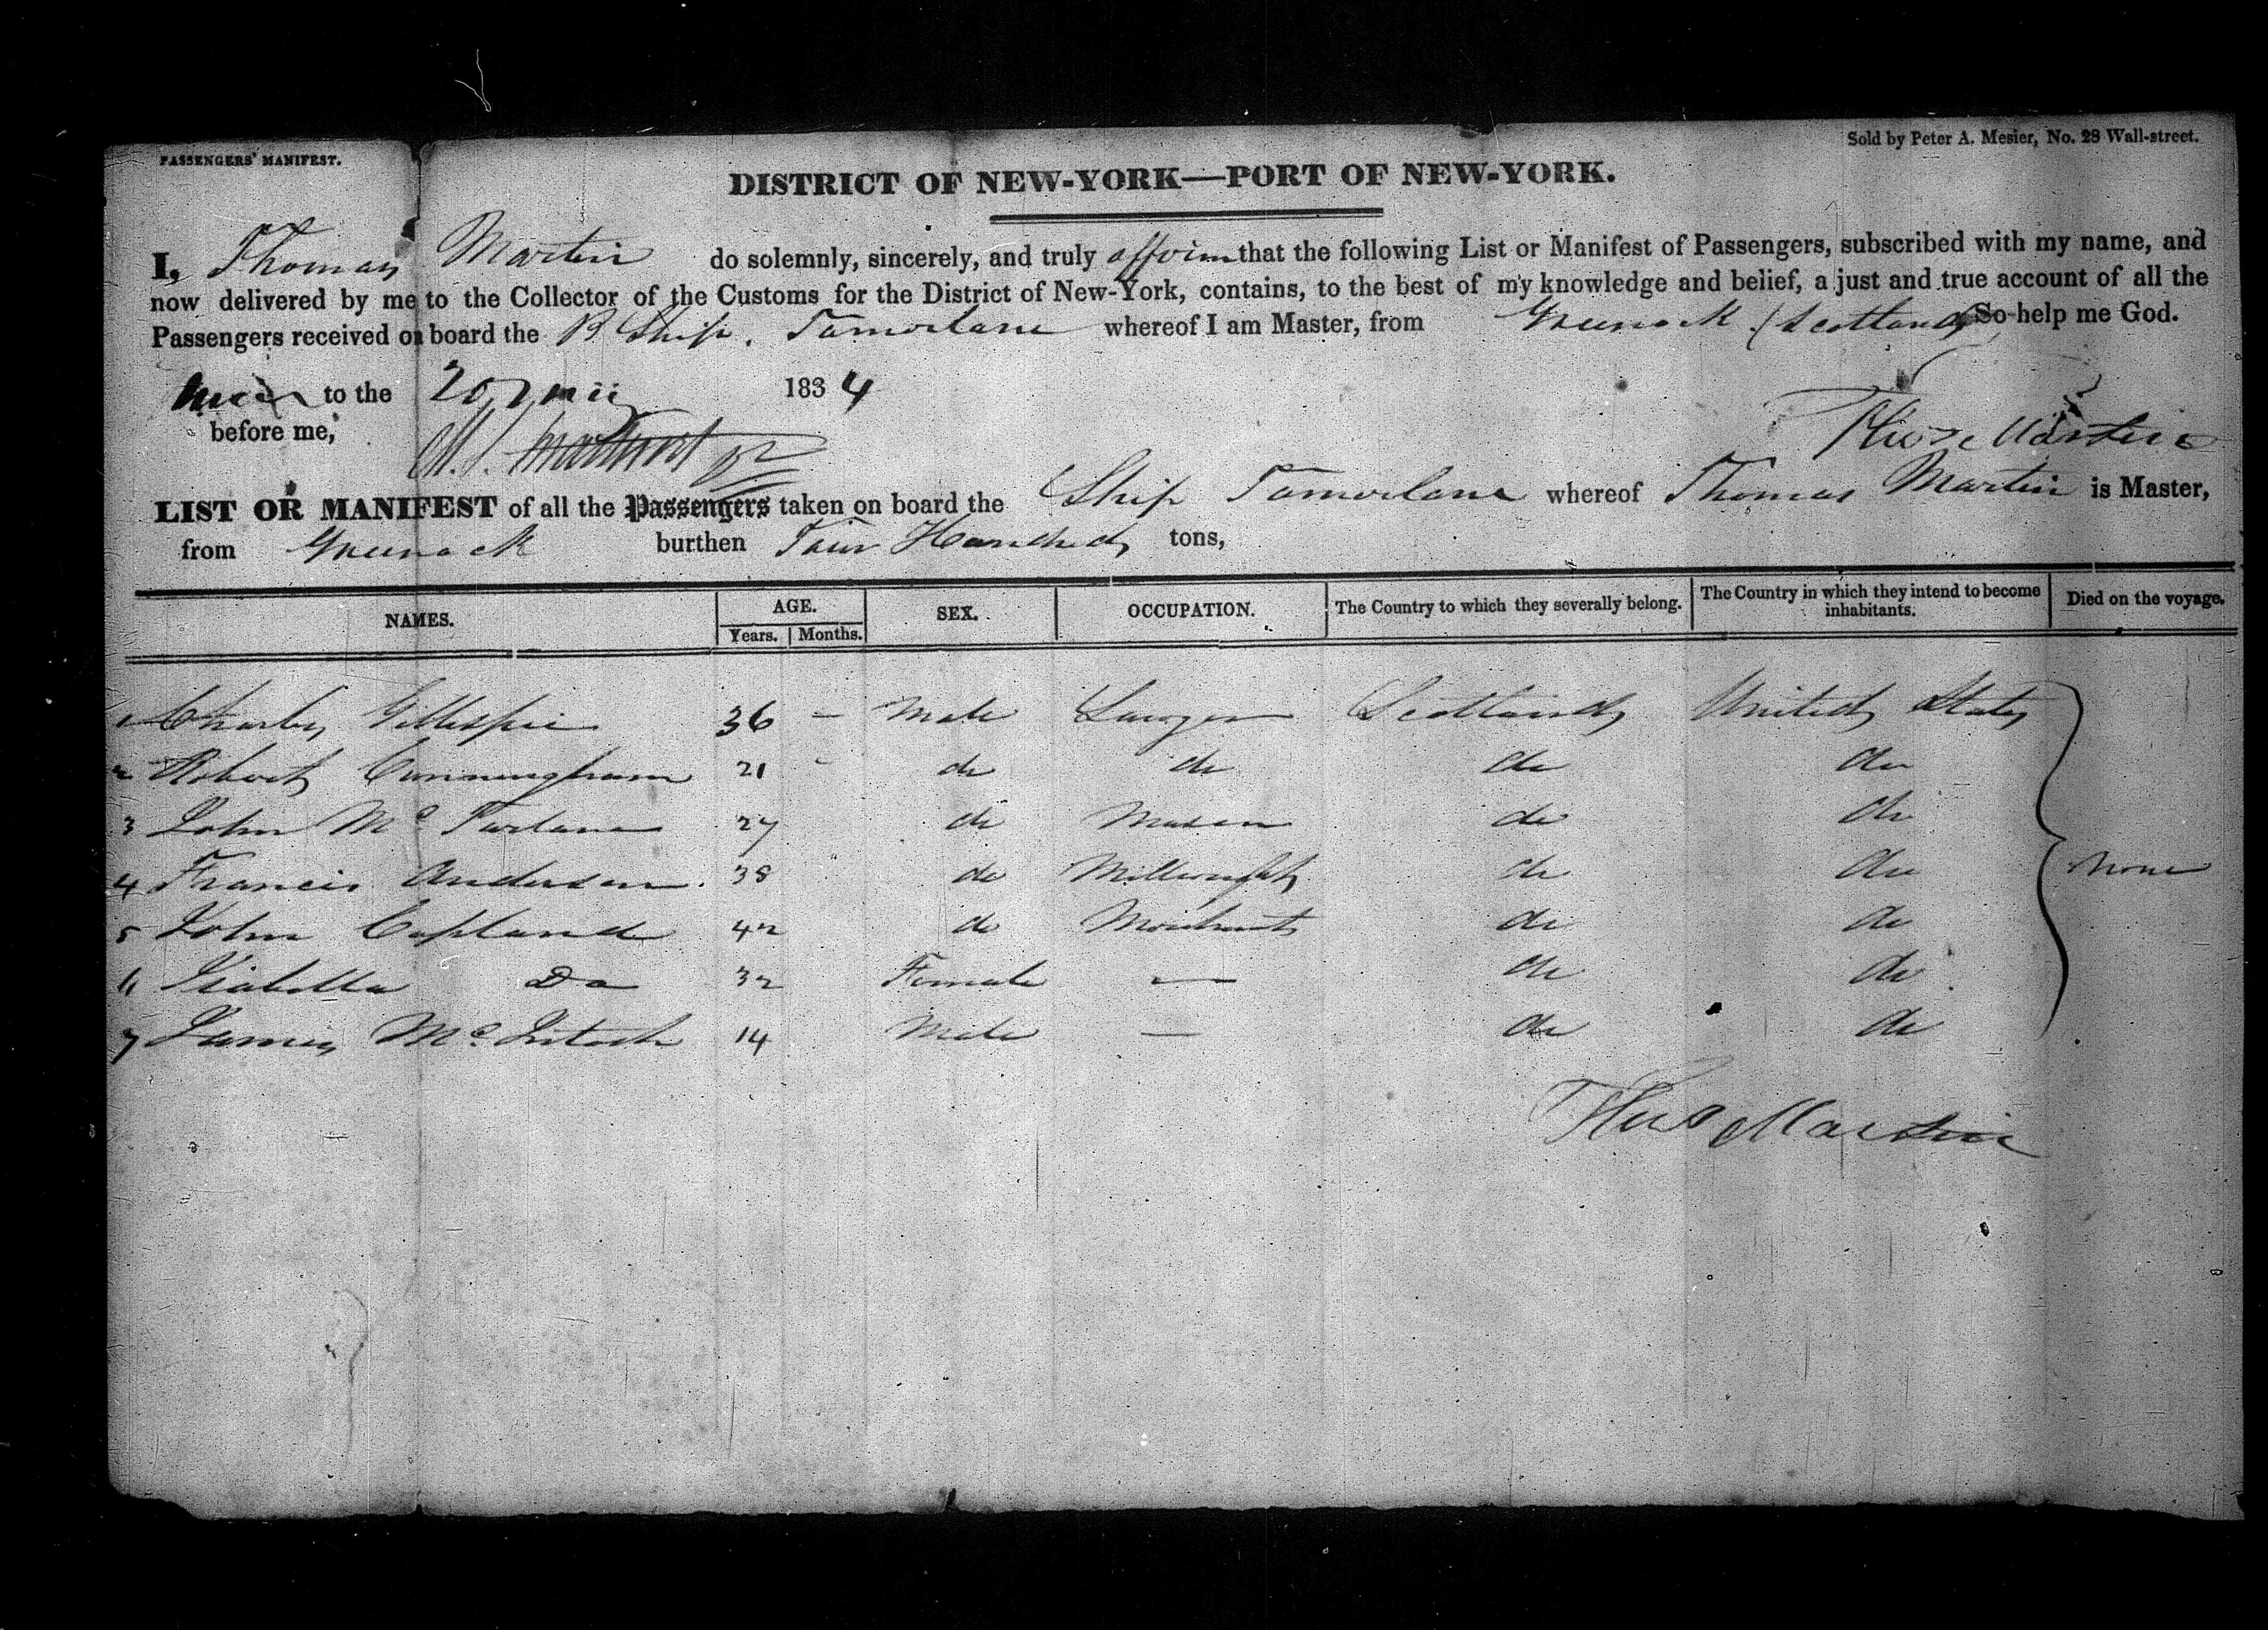 PASSENGERS' MANIFEST.
Sold by Peter A. Mesier, No. 28 Wall-street.
DISTRICT OF NEW-YORK—PORT OF NEW-YORK.
I, Thomas Martin do solemnly, sincerely, and truly affirm that the following List or Manifest of Passengers, subscribed with my name, and
now delivered by me to the Collector of the Customs for the District of New-York, contains, to the best of my knowledge and belief, a just and true account of all the
Passengers received on board the B Ship. Tamerlane whereof I am Master, from Greenock (Scotland) So help me God.
to the 20 1834
before me,
Thos Martin
LIST OR MANIFEST of all the Passengers taken on board the Ship Tamerlane whereof Thomas Martin is Master,
from Greenock burthen Four Hundred tons,
NAMES. AGE. SEX. OCCUPATION. The Country to which they severally belong. The Country in which they intend to become inhabitants. Died on the voyage.
Years. Months.
1 Charles Gillespie 36 — Male Scotland United States
2 Robert Cunningham 21 - do do do do
3 John Mc Farlane 27 do Mason do do
4 Francis Anderson. 38 do Millwright do do None
5 John Copland 42 do Merchant do do
6 Isabella Do 32 Female — do do
7 James Mc Intosh 14 Male — do do
Thos Martin